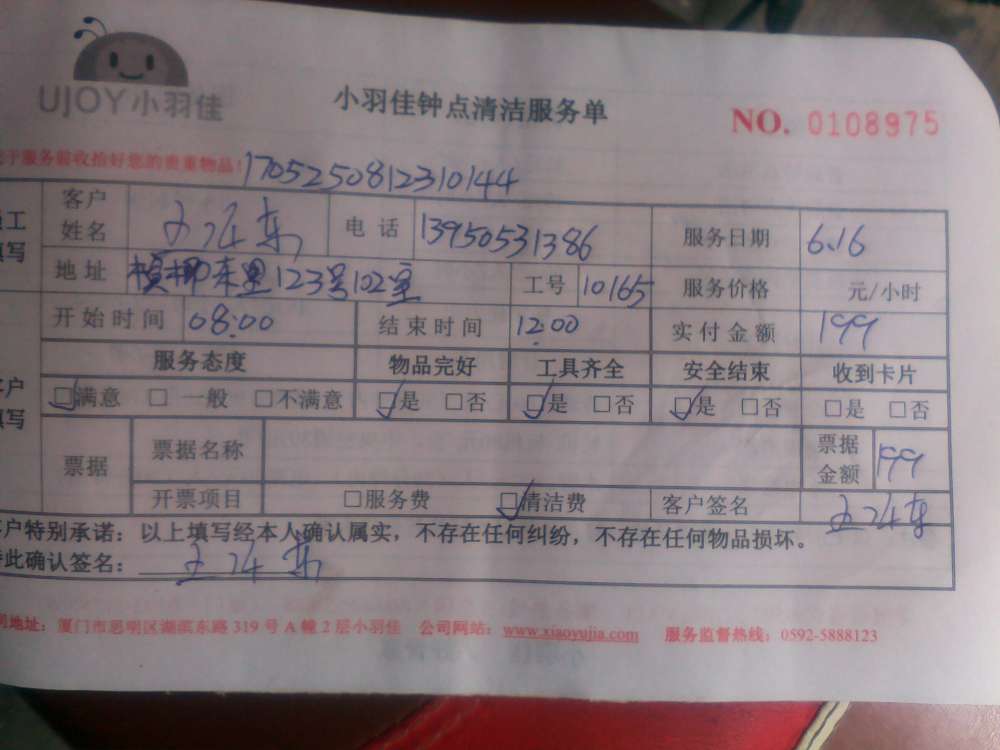 UJOY小羽佳
小羽佳钟点清洁服务单
NO. 0108975
于服务前收拾好您的贵重物品! 1705250812310144
员工填写
客户姓名 电话 13950531386 服务日期 6.16
地址 槟榔东里123号102室 工号 10165 服务价格 元/小时
开始时间 08:00 结束时间 12:00 实付金额 199
客户填写
服务态度 物品完好 工具齐全 安全结束 收到卡片
☑满意 □一般 □不满意 ☑是 □否 ☑是 □否 ☑是 □否 □是 □否
票据 票据名称 票据金额 199
开票项目 □服务费 ☑清洁费 客户签名
客户特别承诺：以上填写经本人确认属实，不存在任何纠纷，不存在任何物品损坏。
特此确认签名：
司地址：厦门市思明区湖滨东路 319 号 A 幢 2 层小羽佳 公司网站：www.xiaoyujia.com 服务监督热线：0592-5888123